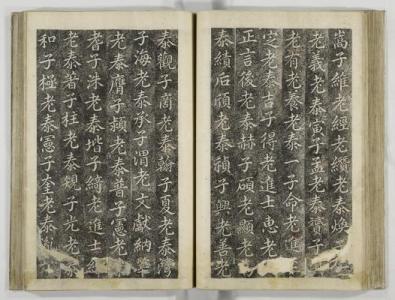 嵩子維老經老纘老泰煥
老義老泰寅子孟老泰瓚子
老有老養老泰一子命老進
定老泰吉子得老進士惠老
正言後老泰赫子碩老顯老
泰績后頎老泰禎子興老善老
泰觀子崗老泰翰子夏老泰
子海老泰承子渭老文獻納
老泰膺子穎老泰普子憲老
耆子洙老泰堦子綺老進士
老泰著子柱老泰規子光老
和子極老泰憲子奎老泰